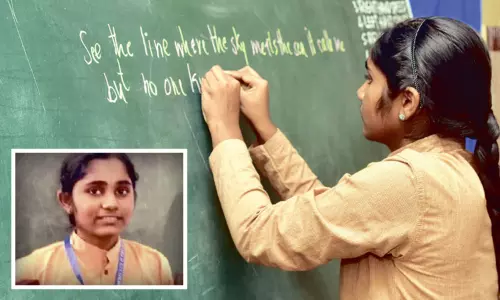 See the line where the sky meets the sea it calls me
but no one k